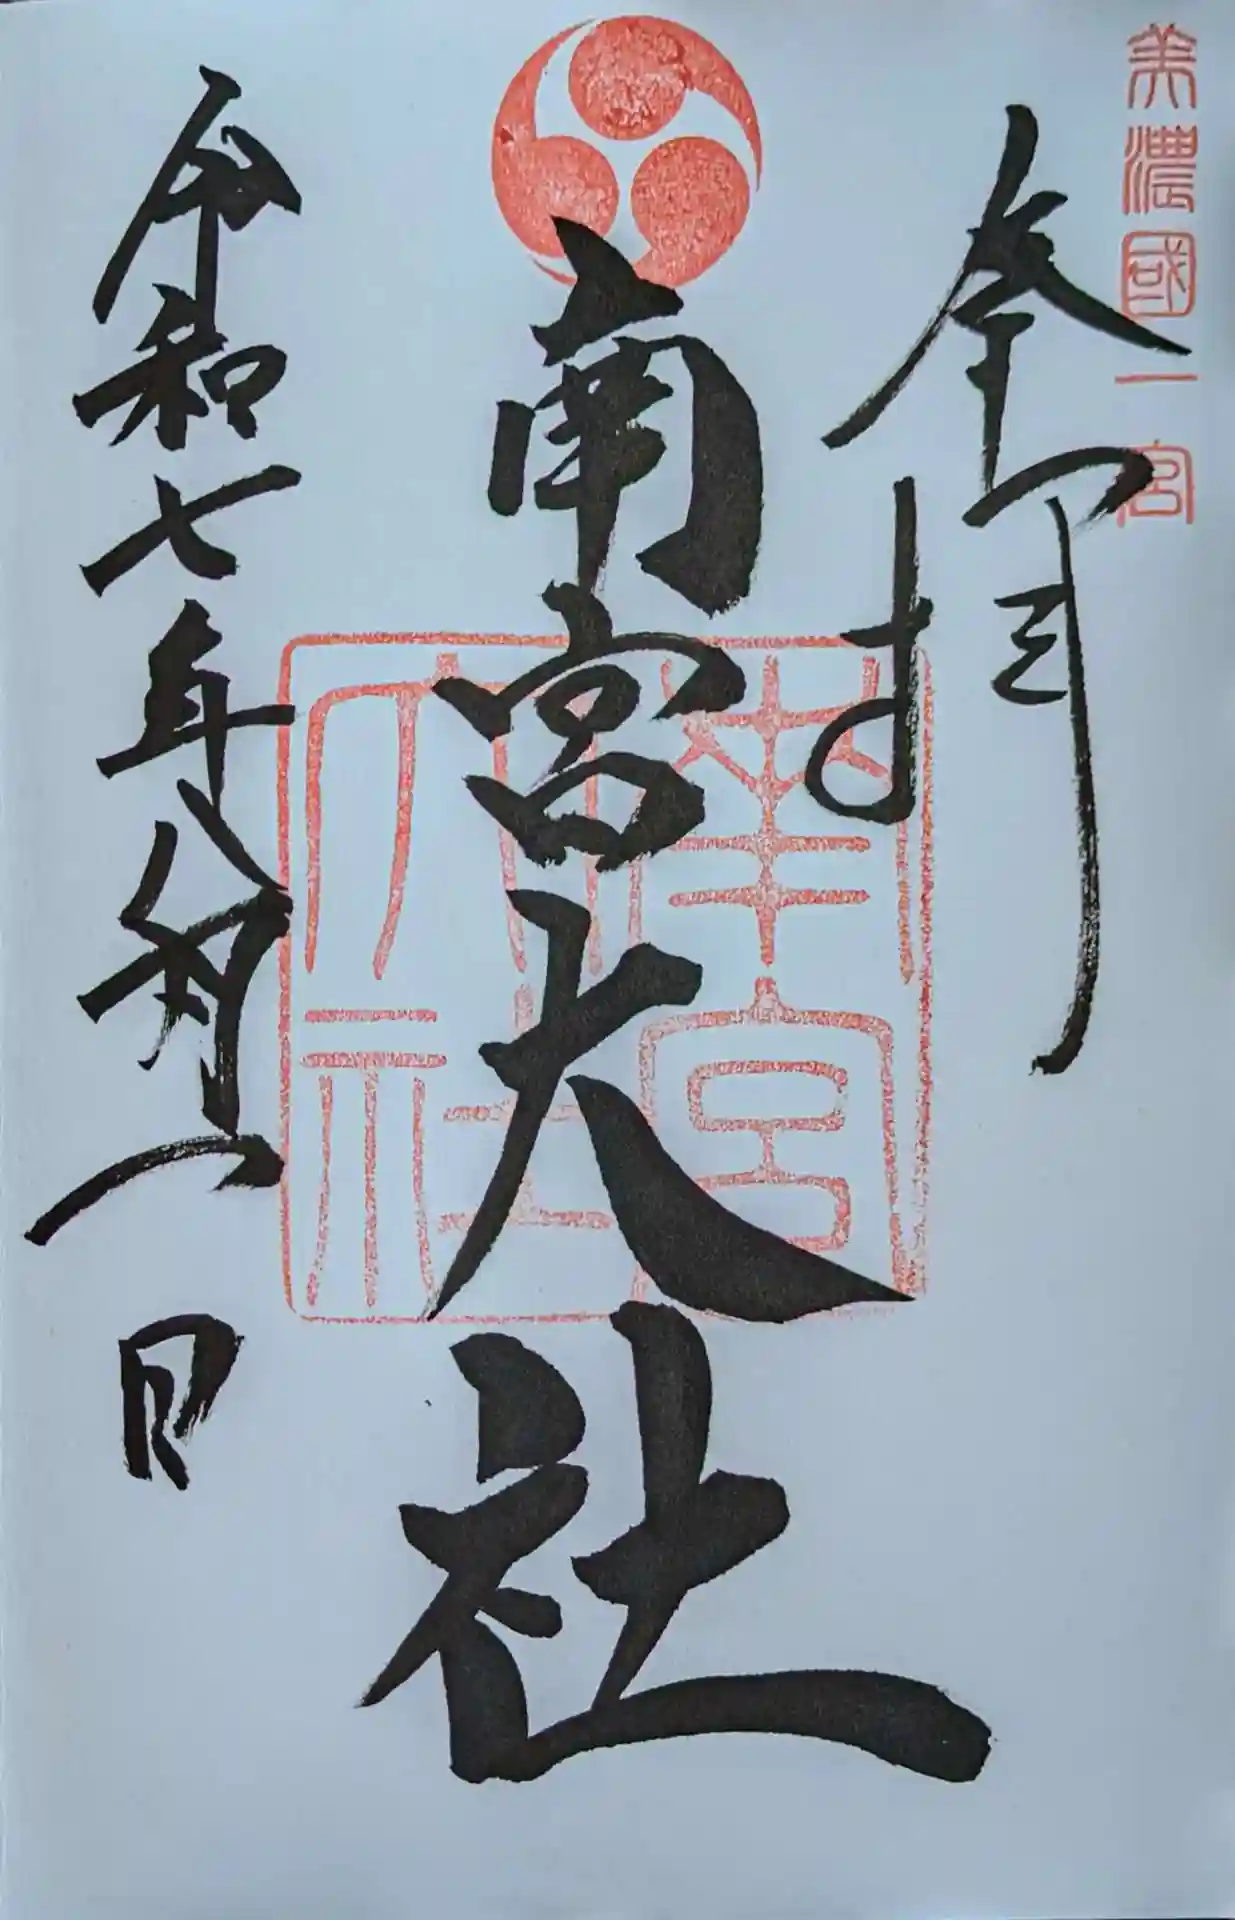 美濃國一宮
奉拝
南宮大社
南宮大社
令和七年八日